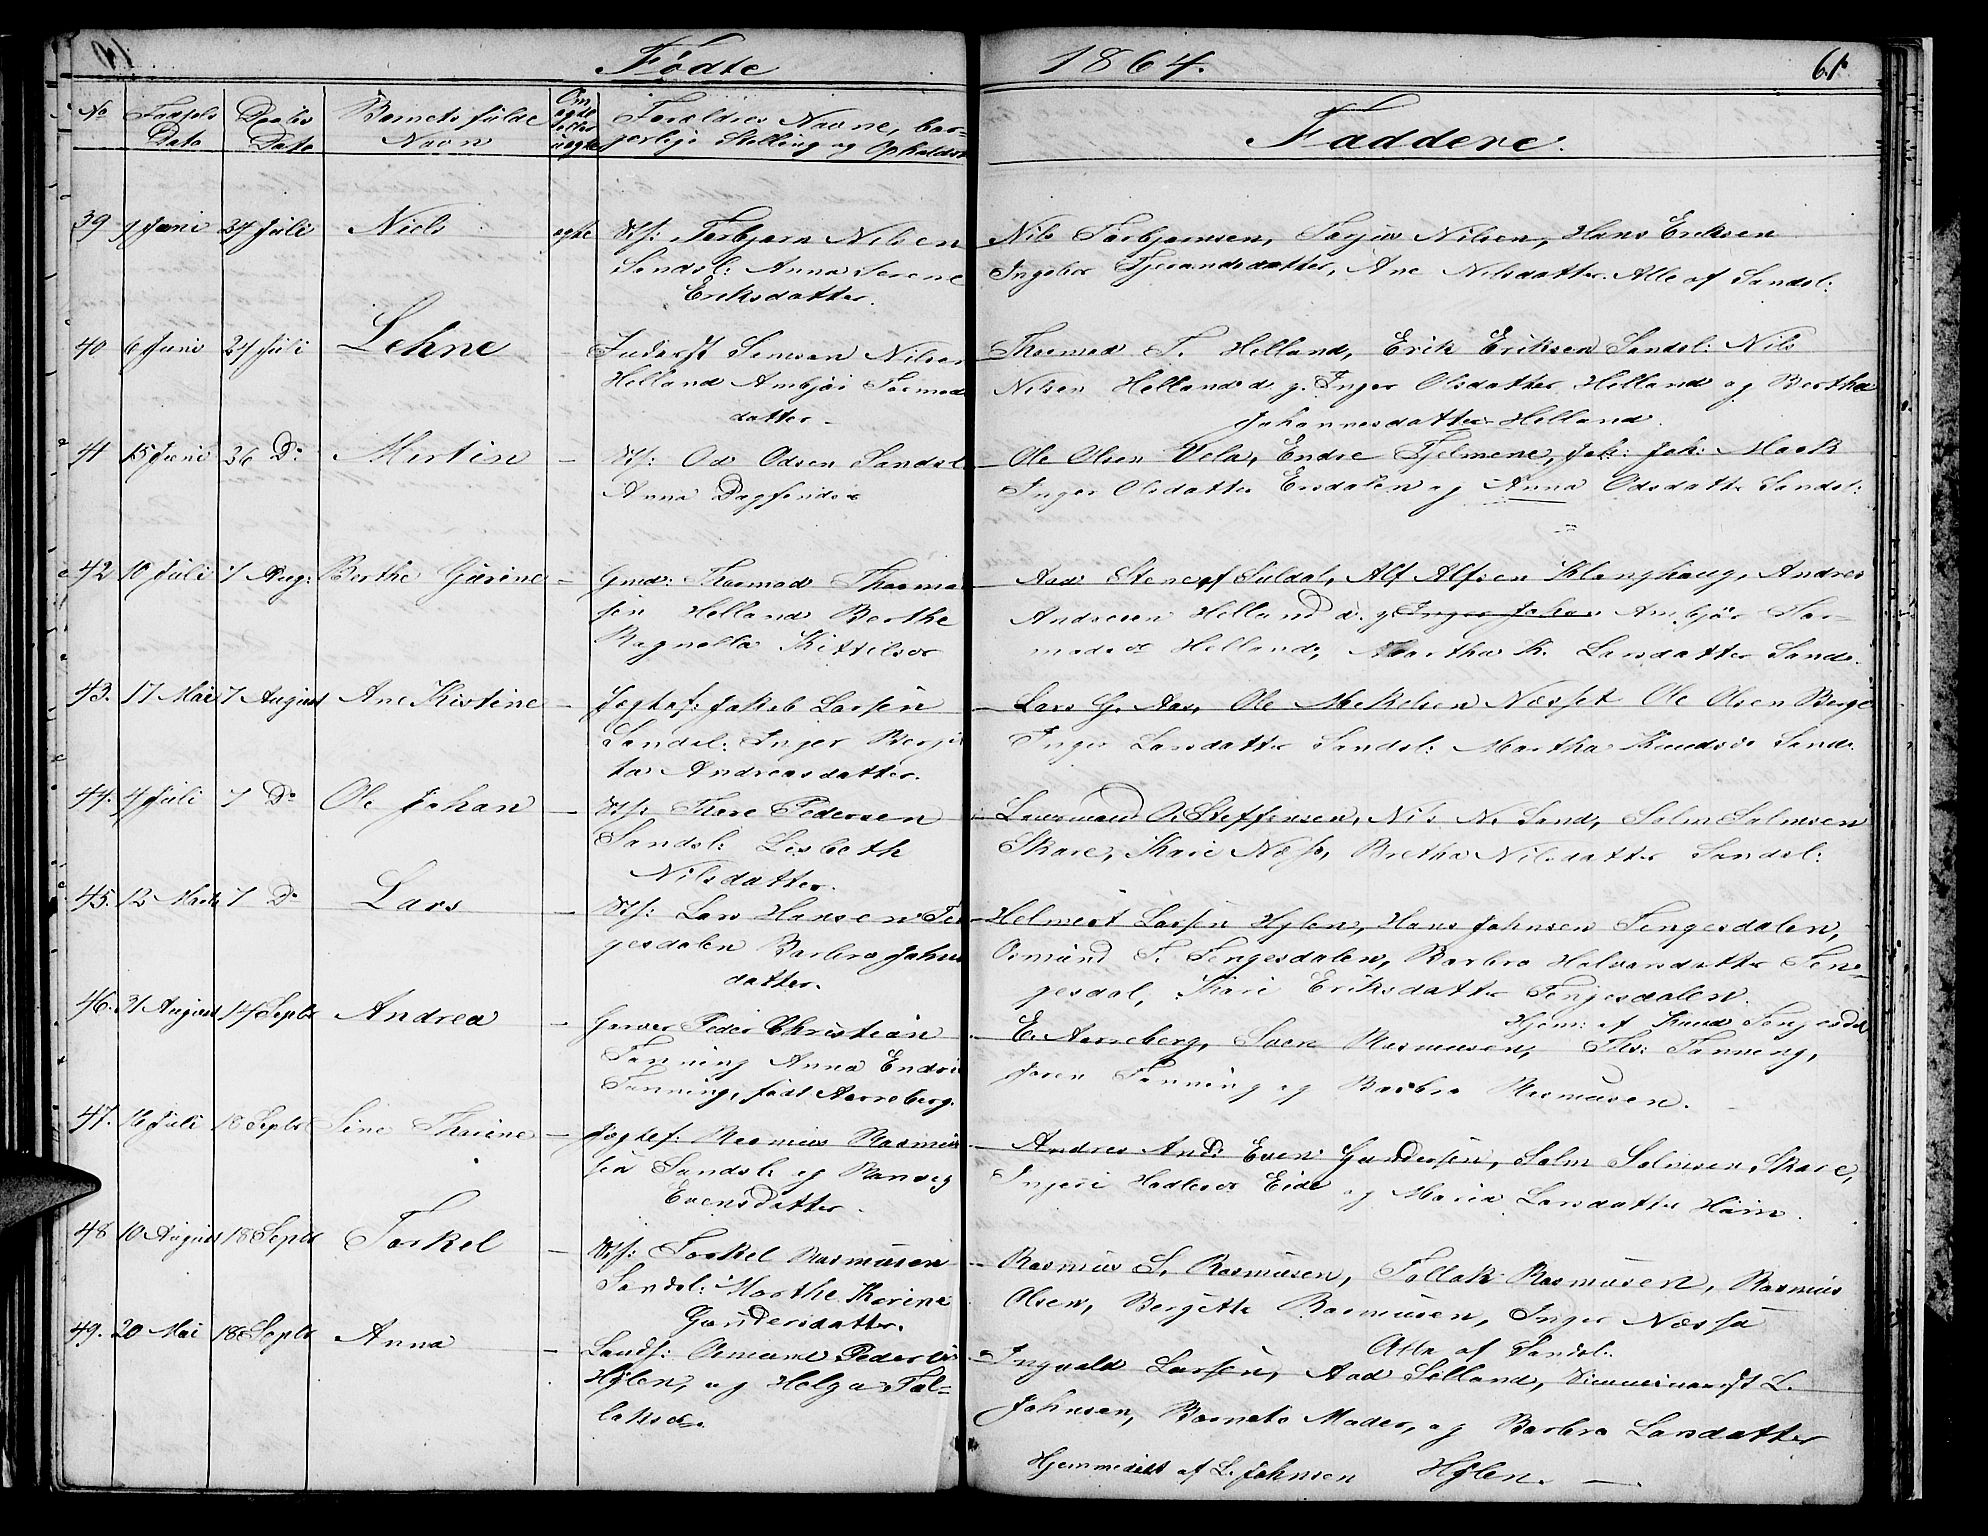 Fødte
1864.
61.
No
Fødsels Dato
Daabs Dato
Barnets fulde Navn
Om ægte eller uægte
Forældres Navne, borgerlige Stilling og Opholds
Faddere.
39 1 Juni 24 Juli Niels ægte Torbjørn Nilsen
Sandsl: Anna Serene
Eriksdatter.
Nils Torbjørnsen, Nilsen, Hans Eriksen
Ingebor Ane Nilsdatter. Alle af Sandsl:
40 6 Juni 24 Juli Lehne Inderst Simson Nilsen
Helland Ambjør Tormods
datter.
Thormod T. Helland, Erik Eriksen Sandsl: Nils
Nilsen Helland d. y. Inger Olsdatter Helland og Bertha
Johannesdatter Helland.
41 15 Juni 26 Do Mertin — Od Odsen Sandsl
Anna Dagfinds
Ole Olsen Vela, Endre Joh: Joh: Maak
Inger Olsdatter og Anna Odsdatter Sandsl:
42 10 Juli 7 Aug: Berthe Gurine — Gmd: Thormod Thormod
sen Helland Berthe
Ragnella Kittilsdr
Stene af Suldal, Alf Alfsen Klunghaug, Andres
Andresen Helland d. y. Ambjør Tor-
modsdr Helland, Martha K. Larsdatter Sands.
43. 17 Mai 7 August Ane Kistine — Jagtef: Jakob Larsen
Sandsl: Inger Berji
ta Andreasdatter.
Lars G. Aas, Ole Mekelsen Næsset Ole Olsen Berge
Inger Larsdatter Sandsl: Martha Knudsdr Sands.
44. 4 Juli 7 Do Ole Johan — Thore Pedersen
Sandsl: Lisbeth
Nilsdatter.
Steffensen, Nils N. Sand, Salm Salmsen
Skare, Kari Næss, Bretha Nilsdatter Sandsl:
45. 12 Marts 7 Do Lars — Lars Hansen Ten
gesdalen Barbra Johns
datter.
Helmert Larsen Hylen, Hans Johnsen Tengesdalen,
Osmund T. Tengesdalen, Barbro Halvorsdatter Ten-
gesdal, Kari Eriksdatter Tengesdalen.
Hjem: af Knud Tengesdal
46. 31 August 14 Septr Andrea — Garver Peder Christian
Fanning Anna Endri
Fanning, født Aarreberg.
E. Aarreberg, Svен Rasmusen, Ths: Fanning,
Joren Fanning og Barbra Rasmusen.
47. 16 Juli 18 Septr Sine Thorine — Jagtef: Rasmus Rasmus
sen Sandsl: og Ranveg
Evensdatter.
Andres And: Even Gundersen, Salm Salmsen Skare,
Ingeri Hadlesdr Eide og Maria Larsdatter
48 10 August 18 Septr Torkel — Torkel Rasmusen
Sandsl: Marthe Karine
Gundersdatter.
Rasmus S. Rasmusen, Tollak Rasmusen, Rasmus
Olsen, Bergitte Rasmusen, Inger Næssa
Alla af Sandsl:
49. 20 Mai 18 Septr Anna — Landh: Osmund Pedersen
Hylen, og Helga Tol-
laksdr.
Ingvald Larsen, Aad Selland, L.
Johnsen, Barnets Moder, og Barbro Larsdatter
Hjemmedøbt af L. Johnsen Hylen. —